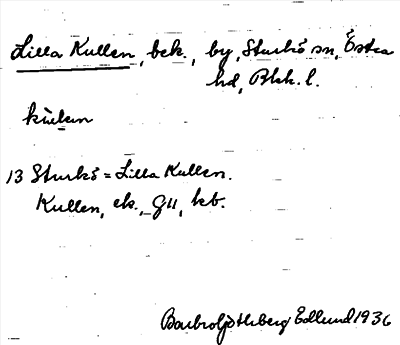 Lilla Kullen, bek., by, Sturkö sn, Östra
hd, Blek. l.
kùlen
13 Sturkö = Lilla Kullen.
Kullen, ek., GU, kb.
Barbro Edlund 1936